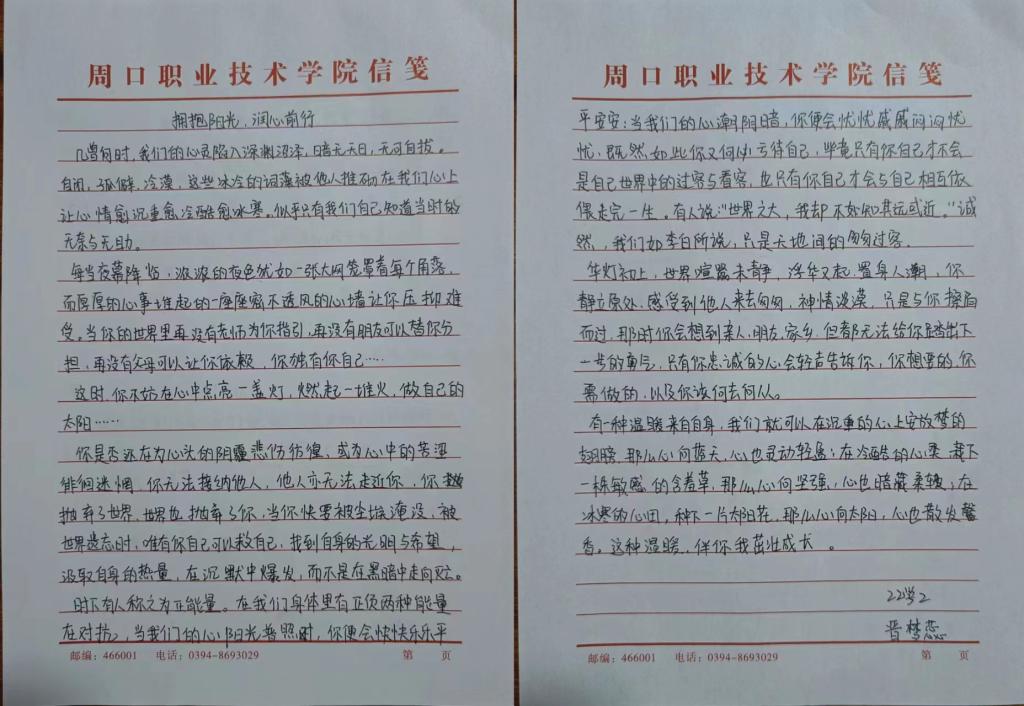 周口职业技术学院信笺
拥抱阳光，润心前行
几曾何时，我们的心灵陷入深渊沼泽，暗无天日，无可自拔。
自闭，孤僻，冷漠，这些冰冷的词藻被他人堆砌在我们心上
让心情愈沉重愈冷酷愈冰寒。似乎只有我们自己知道当时的
无奈与无助。
每当夜幕降临，浓浓的夜色犹如一张大网笼罩着每个角落，
而厚厚的心事堆起的一座座密不透风的心墙让你压抑难
受。当你的世界里再没有老师为你指引，再没有朋友可以替你分
担，再没有父母可以让你依赖，你独有你自己……
这时，你不妨在心中点亮一盏灯，燃起一堆火，做自己的
太阳……
你是否还在为心头的阴霾悲伤彷徨，或为心中的苦涩
徘徊迷惘，你无法接纳他人，他人亦无法走近你，你
抛弃了世界，世界也抛弃了你，当你快要被尘埃淹没，被
世界遗忘时，唯有你自己可以救自己，找到自身的光明与希望，
汲取自身的热量，在沉默中爆发，而不是在黑暗中走向灭亡。
时下有人称之为正能量。在我们身体里有正负两种能量
在对抗，当我们的心阳光普照时，你便会快快乐乐平
邮编：466001 电话：0394-8693029 第 页
周口职业技术学院信笺
平安安；当我们的心潮阴暗，你便会忧忧戚戚闷闷忧
忧，既然如此你又何必亏待自己，毕竟只有你自己才不会
是自己世界中的过客与看客，也只有你自己才会与自己相互依
偎走完一生。有人说："世界之大，我却不如知其远或近。"诚
然，我们如李白所说，只是天地间的匆匆过客。
华灯初上，世界喧嚣未静，浮华又起，置身人潮，你
静立原处，感受到他人来去匆匆，神情淡漠，只是与你擦肩
而过，那时你会想到亲人，朋友，家乡，但都无法给你踏出下
一步的勇气，只有你忠诚的心会轻声告诉你，你想要的，你
需做的，以及你该何去何从。
有一种温暖来自自身，我们就可以在沉重的心上安放梦的
翅膀，那么心向蓝天，心也灵动轻盈；在冷酷的心里栽下
一株敏感的含羞草，那么心向坚强，心也暗藏柔软；在
冰寒的心田，种下一片太阳花，那么心向太阳，心也散发馨
香。这种温暖，伴你我茁壮成长。
22学2
晋梦恋
邮编：466001 电话：0394-8693029 第 页